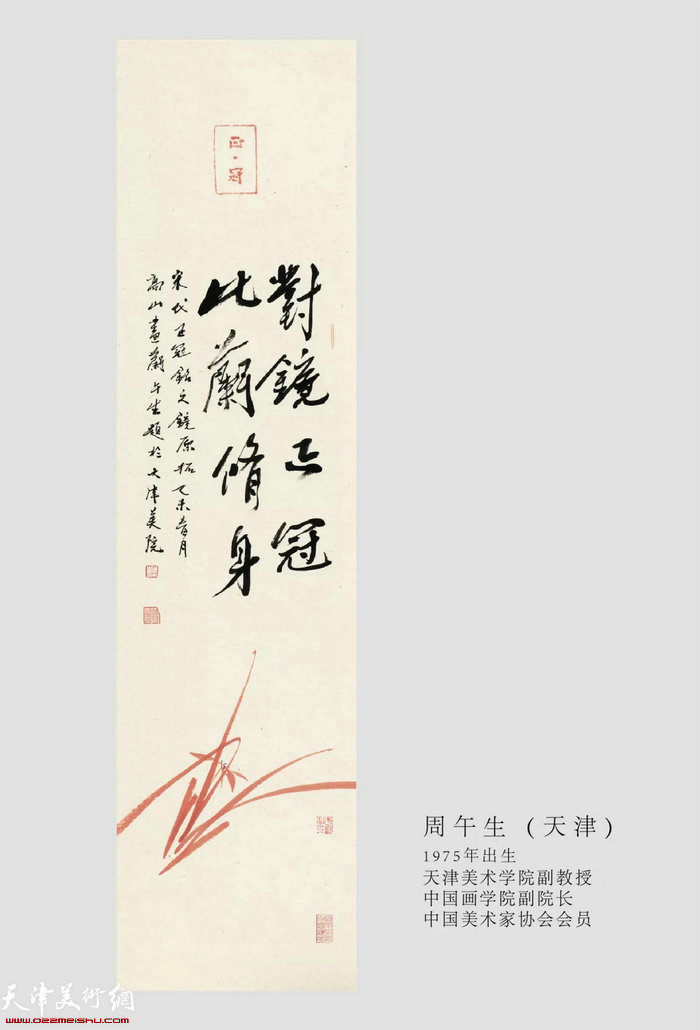 正·冠
對鏡正冠
比蘭脩身
宋代正冠銘文鏡原拓乙未春月
高山畫蘭午生題於天津美院
周午生（天津）
1975年出生
天津美术学院副教授
中国画学院副院长
中国美术家协会会员
天津美術網
www.022meishu.com